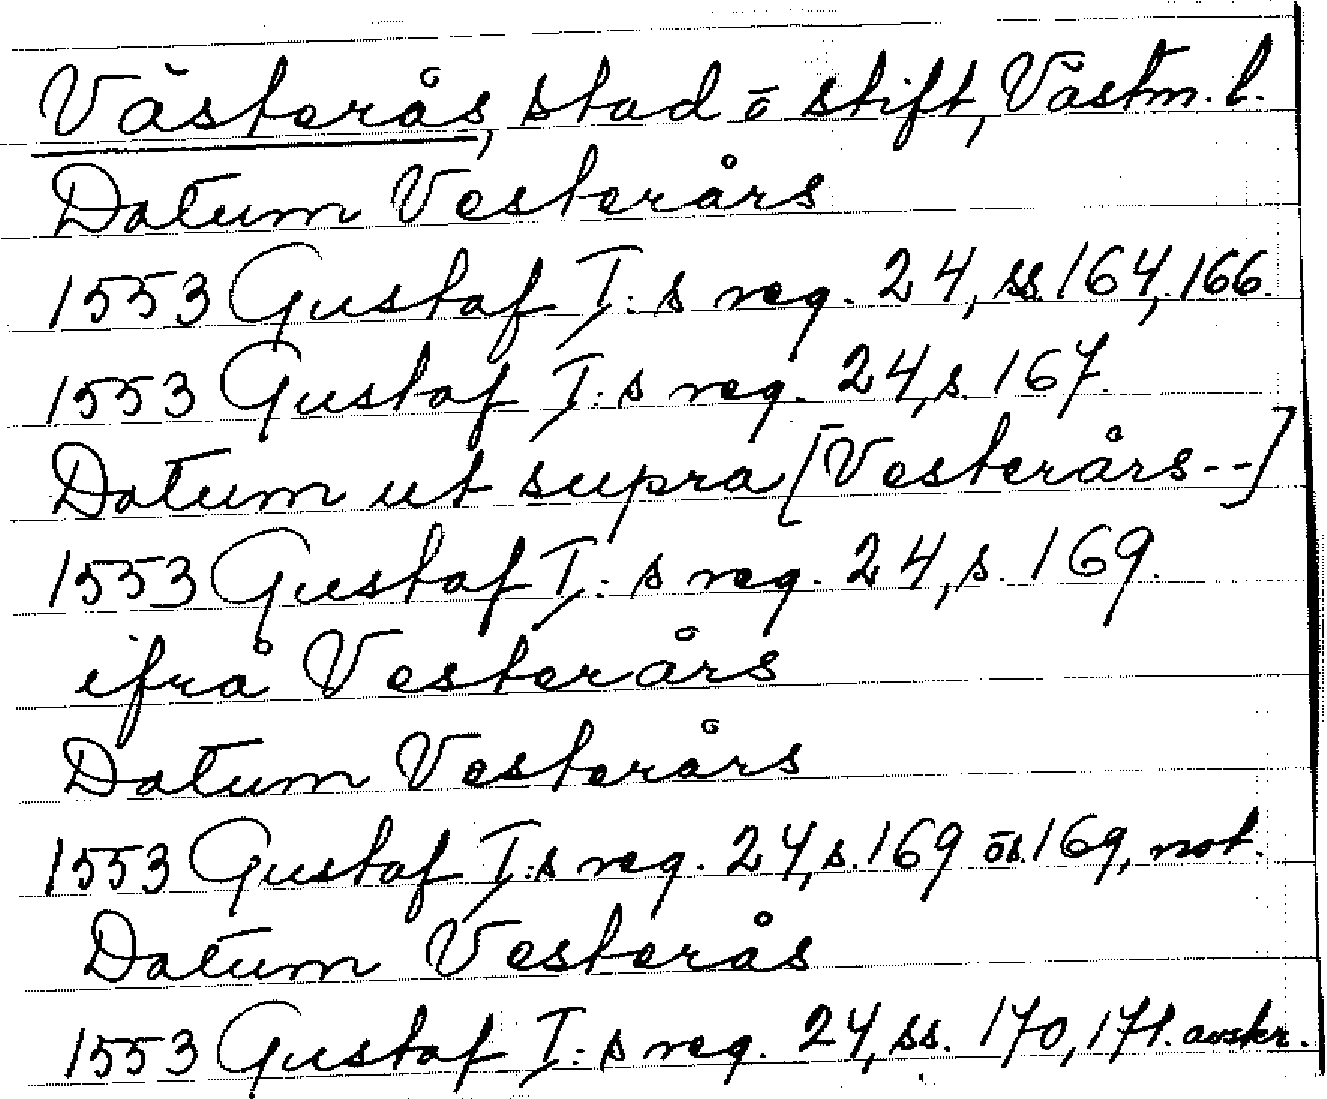 Västerås, stad o stift, Västm. l.
Datum Vesterårs
1553 Gustaf I:s reg. 24, ss. 164, 166.
1553 Gustaf I:s reg. 24, s. 167.
Datum ut supra [Vesterårs--]
1553 Gustaf I:s reg. 24, s. 169.
ifrå Vesterårs
Datum Vesterårs
1553 Gustaf I:s reg. 24, s. 169 ōs. 169, not.
Datum Vesterås
1553 Gustaf I:s reg. 24, ss. 170, 171. avskr.